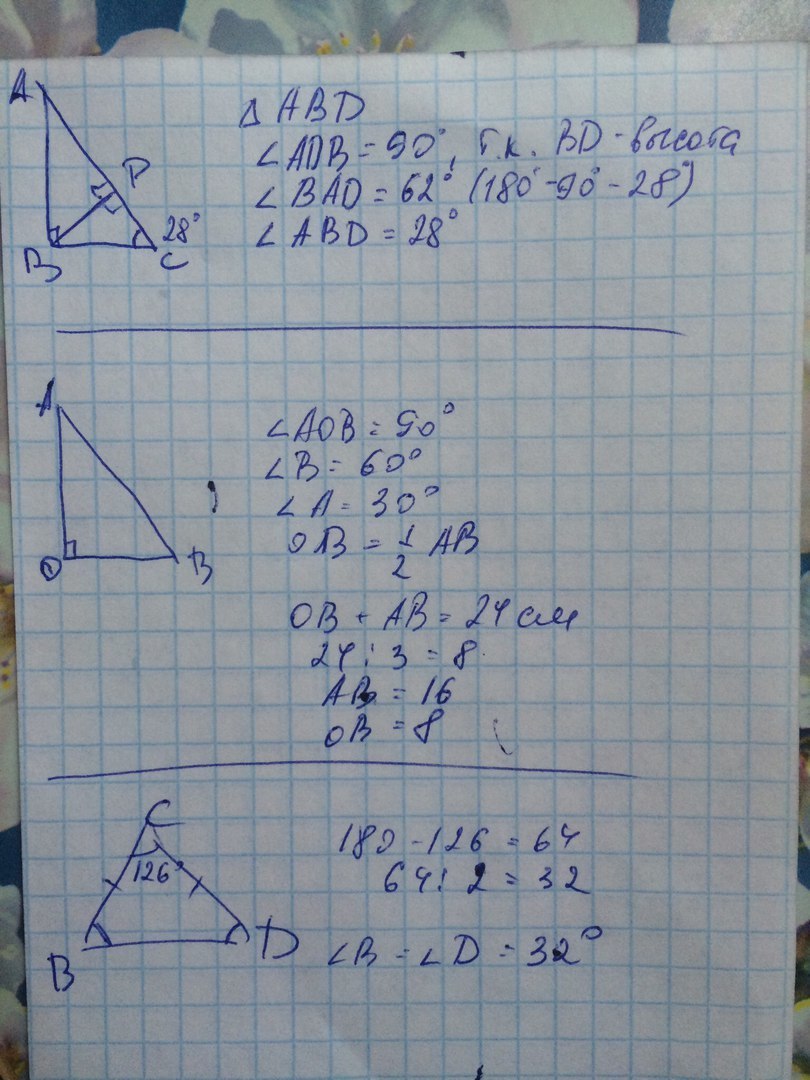 A
D
B
C
28°
Δ ABD
∠ADB = 90°, т.к. BD - высота
∠BAD = 62° (180° - 90° - 28°)
∠ABD = 28°
A
O
B
∠AOB = 90°
∠B = 60°
∠A = 30°
OB = 1/2 AB
OB + AB = 24 см
24 : 3 = 8
AB = 16
OB = 8
C
126°
B
D
180 - 126 = 64
64 : 2 = 32
∠B = ∠D = 32°